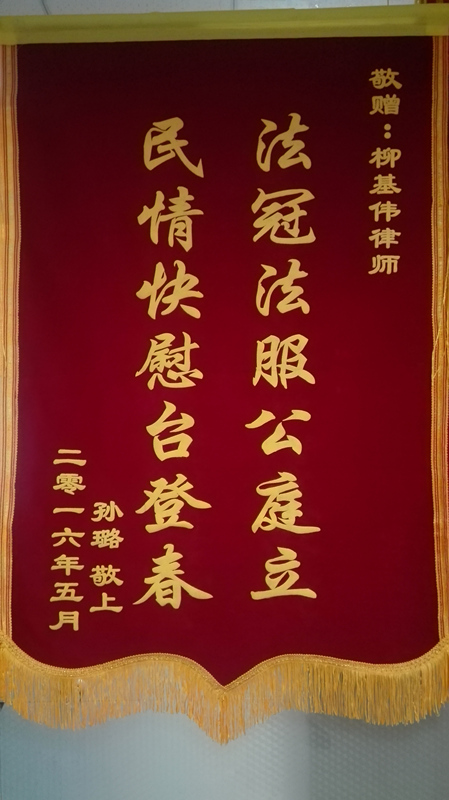 敬赠：柳基伟律师
法冠法服公庭立
民情快慰台登春
孙璐 敬上
二零一六年五月